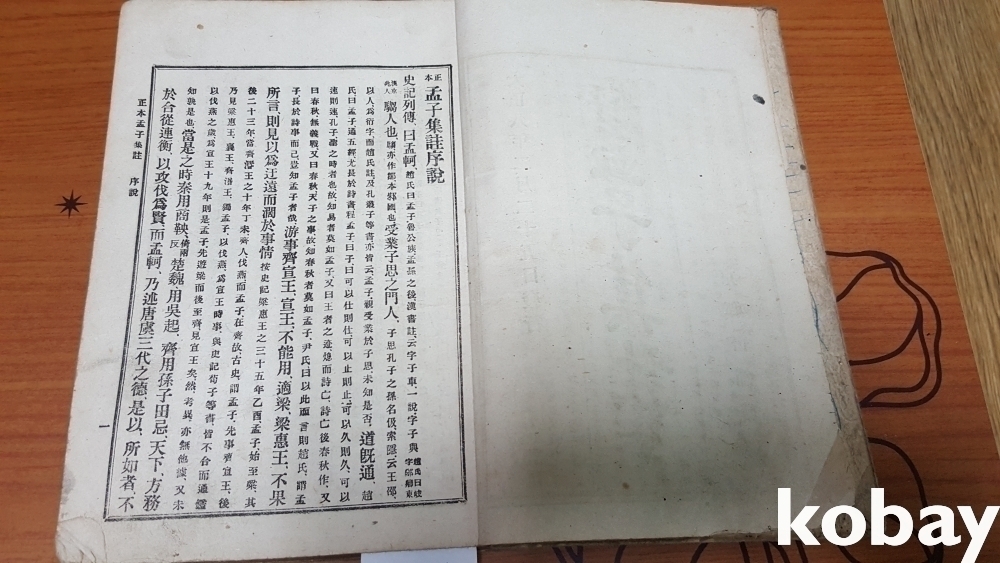 正本 孟子集註序說
史記列傳、曰孟軻、趙氏曰孟子魯公族孟孫之後漢書註云字子車一說字子輿
騶人也、騶亦作鄒、本邾國也受業子思之門人、子思孔子之孫名伋、索隱云王劭、
以人爲衍字而趙氏註及孔叢子等書亦皆云孟子、親受業於子思未知是否、道既通、趙
氏曰孟子通五經尤長於詩書程子曰孟子曰可以仕則仕可以止則止可以久則久、可以
速則速孔子聖之時者也故知易者莫如孟子又曰王者之迹熄而詩亡、詩亡後春秋作、又
曰春秋無義戰又曰春秋天子之事故知春秋者莫如孟子、尹氏曰以此而言則趙氏、謂孟
子長於詩書而已、豈知孟子者哉、游事齊宣王、宣王、不能用、適梁、梁惠王、不果
所言、則見以爲迂遠而濶於事情按史記梁惠王之三十五年乙酉孟子始至梁、其
後二十三年當齊湣王之十年丁未齊人伐燕而孟子、在齊故、古史謂孟子、先事齊宣王、後
乃見梁惠王、襄王、齊湣王、獨孟子、以伐燕、爲宣王時事、與史記荀子等書、皆不合而通鑑
以伐燕之歲、爲宣王十九年則是、孟子、先遊梁而後至齊見宣王矣、然、考異、亦無他據、又未
知孰是也當是之時秦用商鞅、倚兩反楚魏、用吳起、齊用孫子田忌、天下、方務
於合從連衡、以攻伐爲賢、而孟軻、乃述唐虞三代之德、是以、所如者、不
正本孟子集註 序說
一
kobay